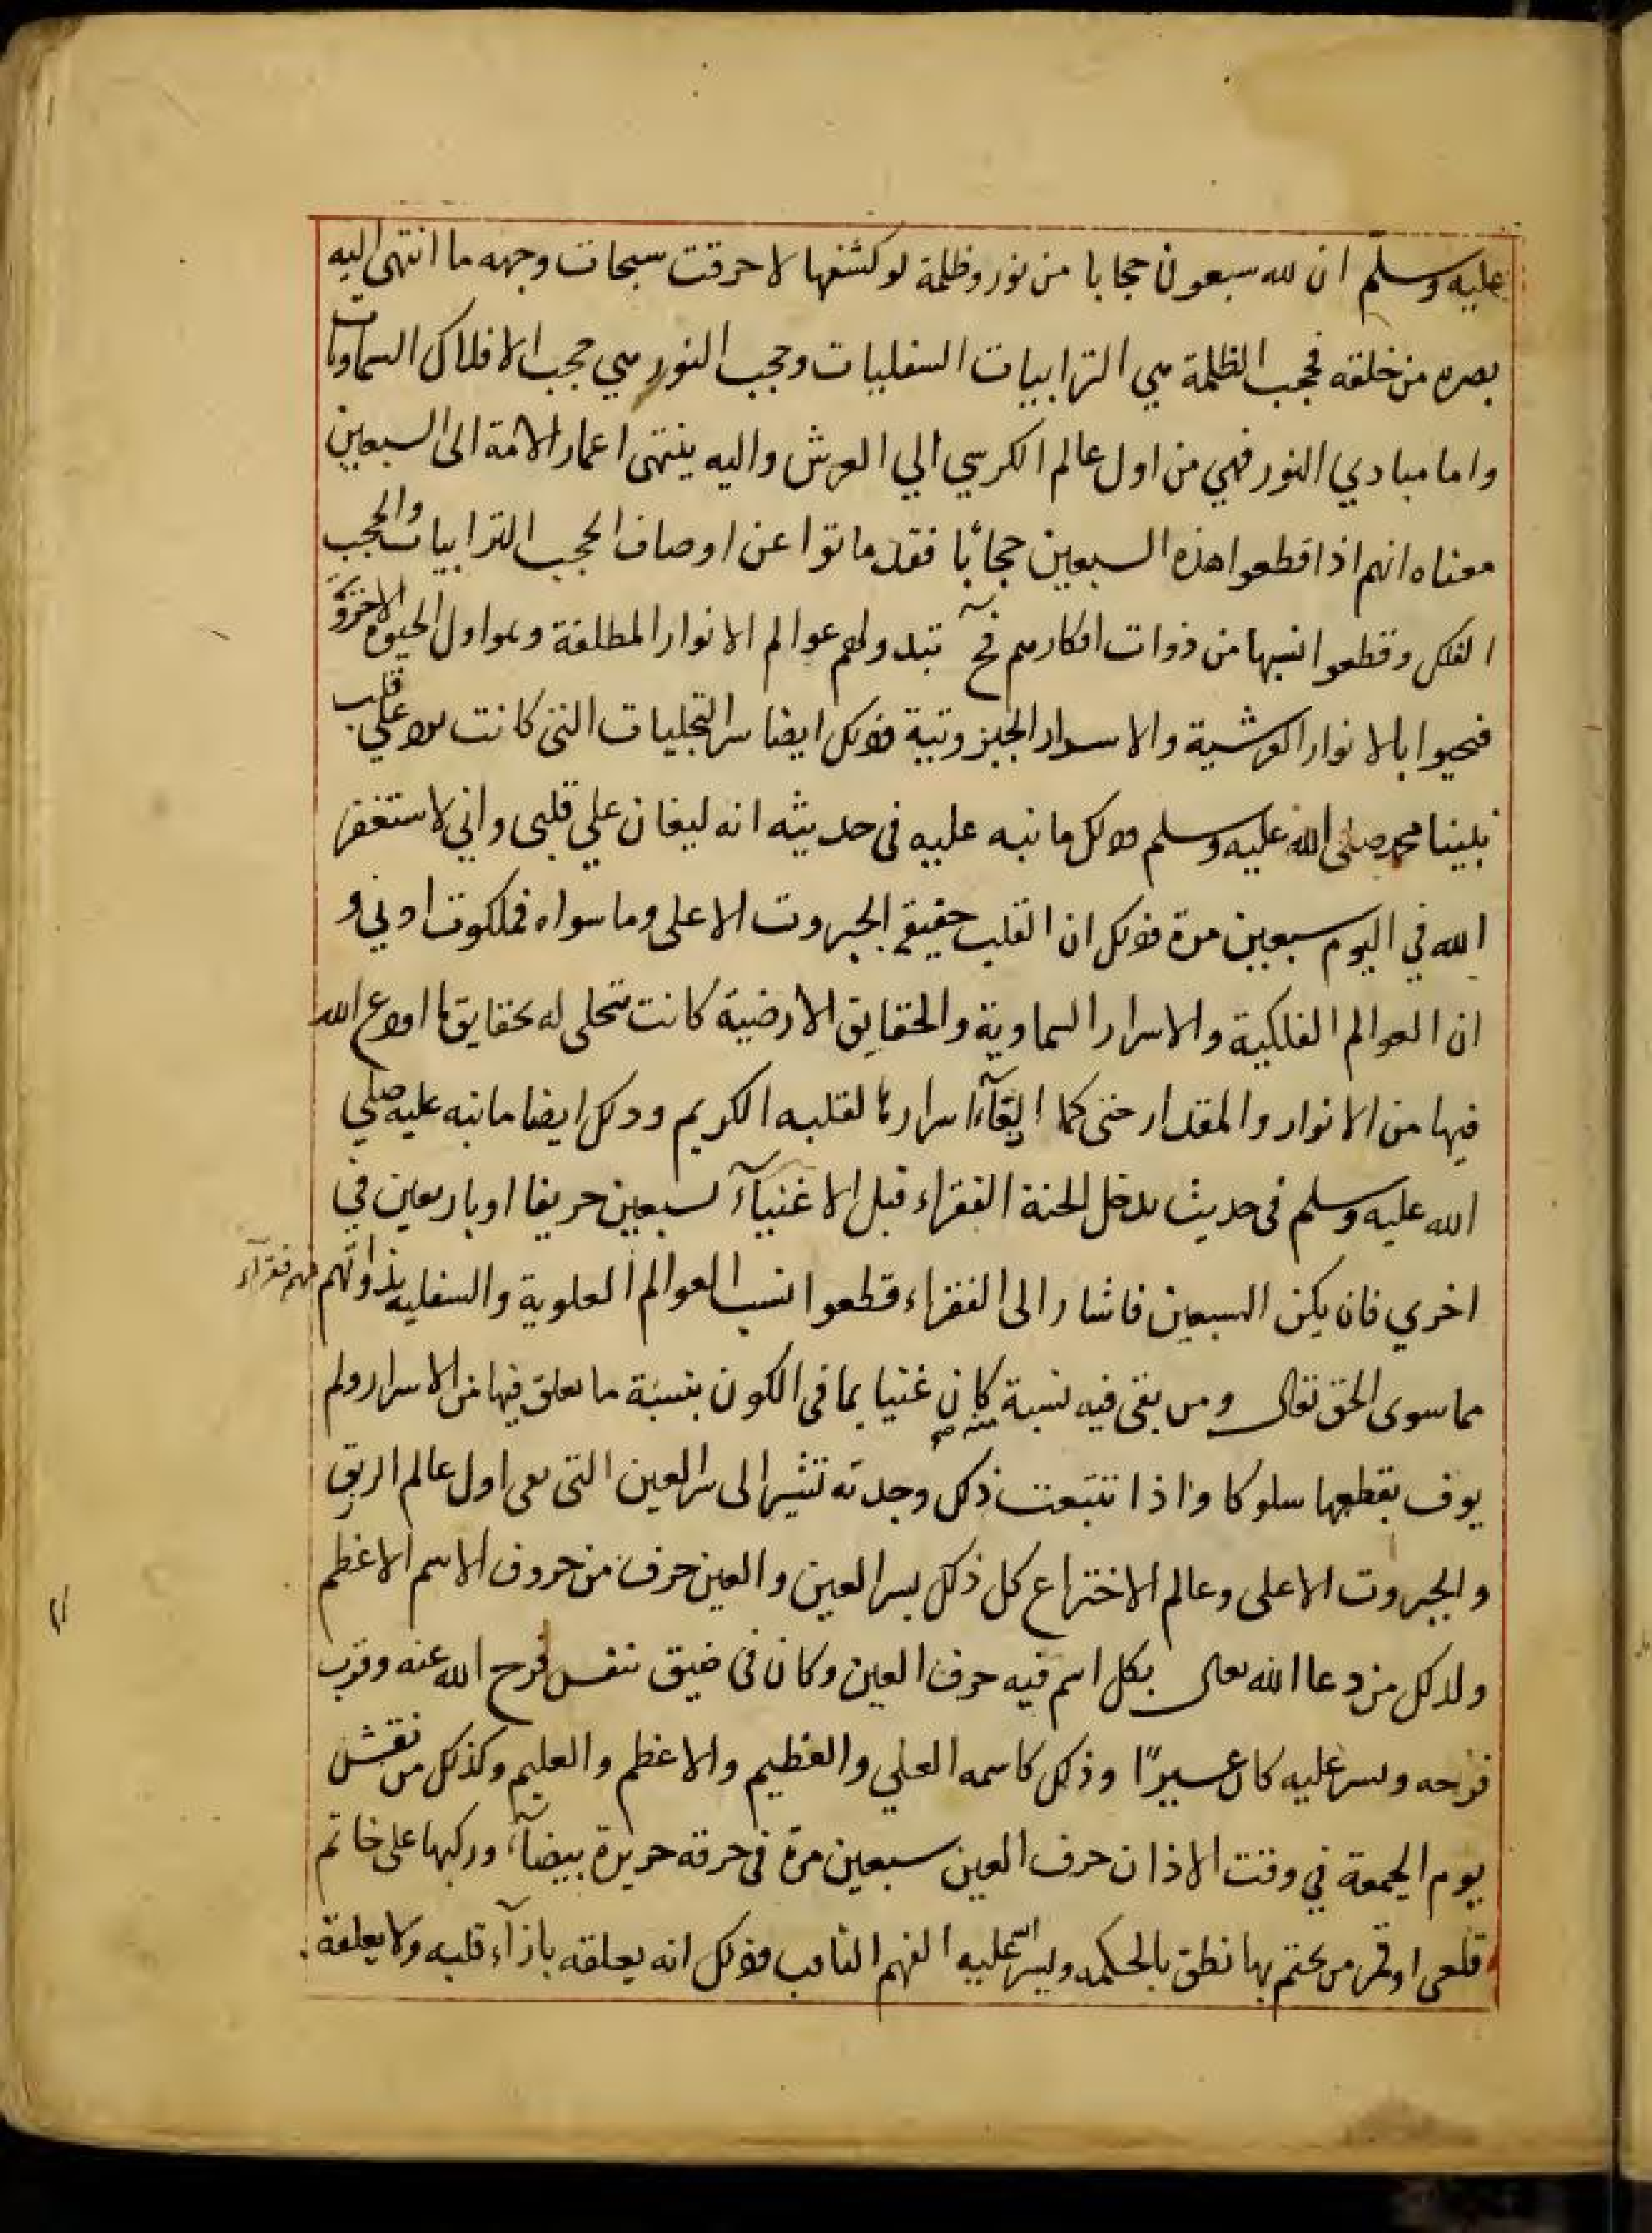 عليه وسلم ان لله سبعون حجابا من نور وظلمة لو كشفها لاحرقت سبحات وجهه ما انتهى اليه
بصره من خلقه فحجب الظلمة هي الترابيات السفليات وحجب النور هي حجب الافلاك السماويات
واما مبادي النور فهي من اول عالم الكرسي الي العرش واليه ينتهى اعمار الامة الى السبعين
معناه انهم اذا قطعوا هذه السبعين حجابًا فقد ماتوا عن اوصاف الحجب الترابيات والحجب
الفلكى وقطعوا نسبها من ذوات افكارهم فح تبدو لهم عوالم الانوار المطلقة وهو اول الحيوة الاخروية
فحيوا بالانوار العرشية والاسرار الجبروتية وذلك ايضا سر التجليات التى كانت ترد علي قلب
نبينا محمد صلى الله عليه وسلم وذلك ما نبه عليه فى حديثه انه ليغان علي قلبى واني لاستغفر
الله في اليوم سبعين مرة وذلك ان القلب حقيقة الجبروت الاعلى وما سواه فملكوت ادني و
ان العوالم الفلكية والاسرار السماوية والحقايق الارضية كانت تتحلى له بحقايق ما اودع الله
فيها من الانوار والمقدار حتى كما القآء اسرارها لقلبه الكريم وذلك ايضا ما نبه عليه صلي
الله عليه وسلم فى حديث يدخل الجنة الفقراء قبل الاغنيآء بسبعين خريفا او باربعين في
اخري فان يكن السبعين فاشار الى الفقراء قطعوا نسب العوالم العلوية والسفلية بذواتهم فهم فقرآء
مما سوى الحق تعالى ومن بقى فيه نسبة منهم كان غنيا بما فى الكون بنسبة ما تعلق فيها من الاسرار ولم
يوف بقطعها سلوكا واذا تتبعت ذلك وجدته تشير الى سر العين التى هى اول عالم الرتق
والجبروت الاعلى وعالم الاختراع كل ذلك بسر العين والعين حرف من حروف الاسم الاعظم
ولذلك من دعا الله تعالى بكل اسم فيه حرف العين وكان فى ضيق نفس فرج الله عنه وقرب
فرحه ويسر عليه كل عسيرًا وذلك كاسمه العلي والعظيم والاعظم والعليم وكذلك من نقش
يوم الجمعة في وقت الاذان حرف العين سبعين مرة فى خرقة حريرة بيضآء وركبها على خاتم
قلعى او قمر من يختم بها نطق بالحكمه ويسر الله عليه الفهم الثاقب وذلك انه يعلقه بازآء قلبه ولا يعلقة